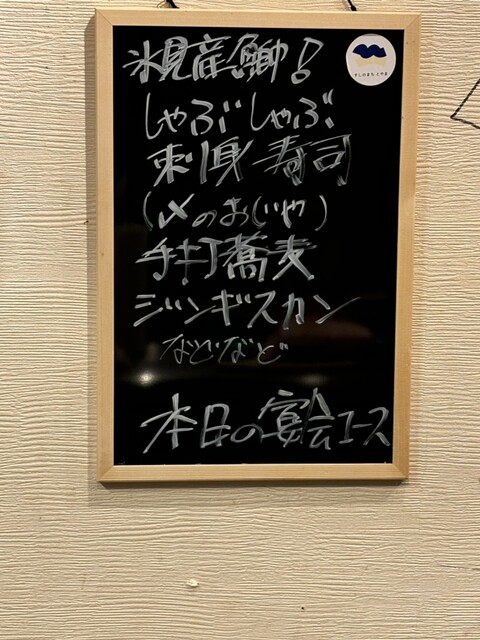 氷見産鰤!
しゃぶしゃぶ
刺身 寿司
(〆のおじや)
手打蕎麦
ジンギスカン
などなど
本日の宴会コース
すしのまち とやま